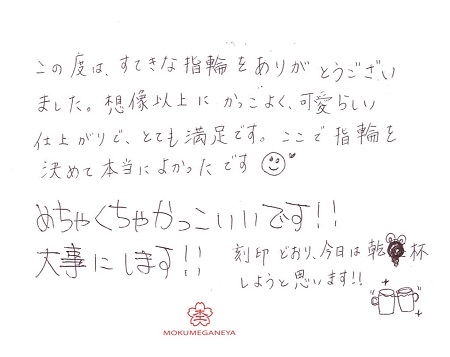 この度は、すてきな指輪をありがとうござい
ました。想像以上にかっこよく、可愛らしい
仕上がりで、とても満足です。ここで指輪を
決めて本当によかったです
めちゃくちゃかっこいいです!!
大事にします!!
刻印どおり、今日は乾杯
しようと思います!!
杢
MOKUMEGANEYA